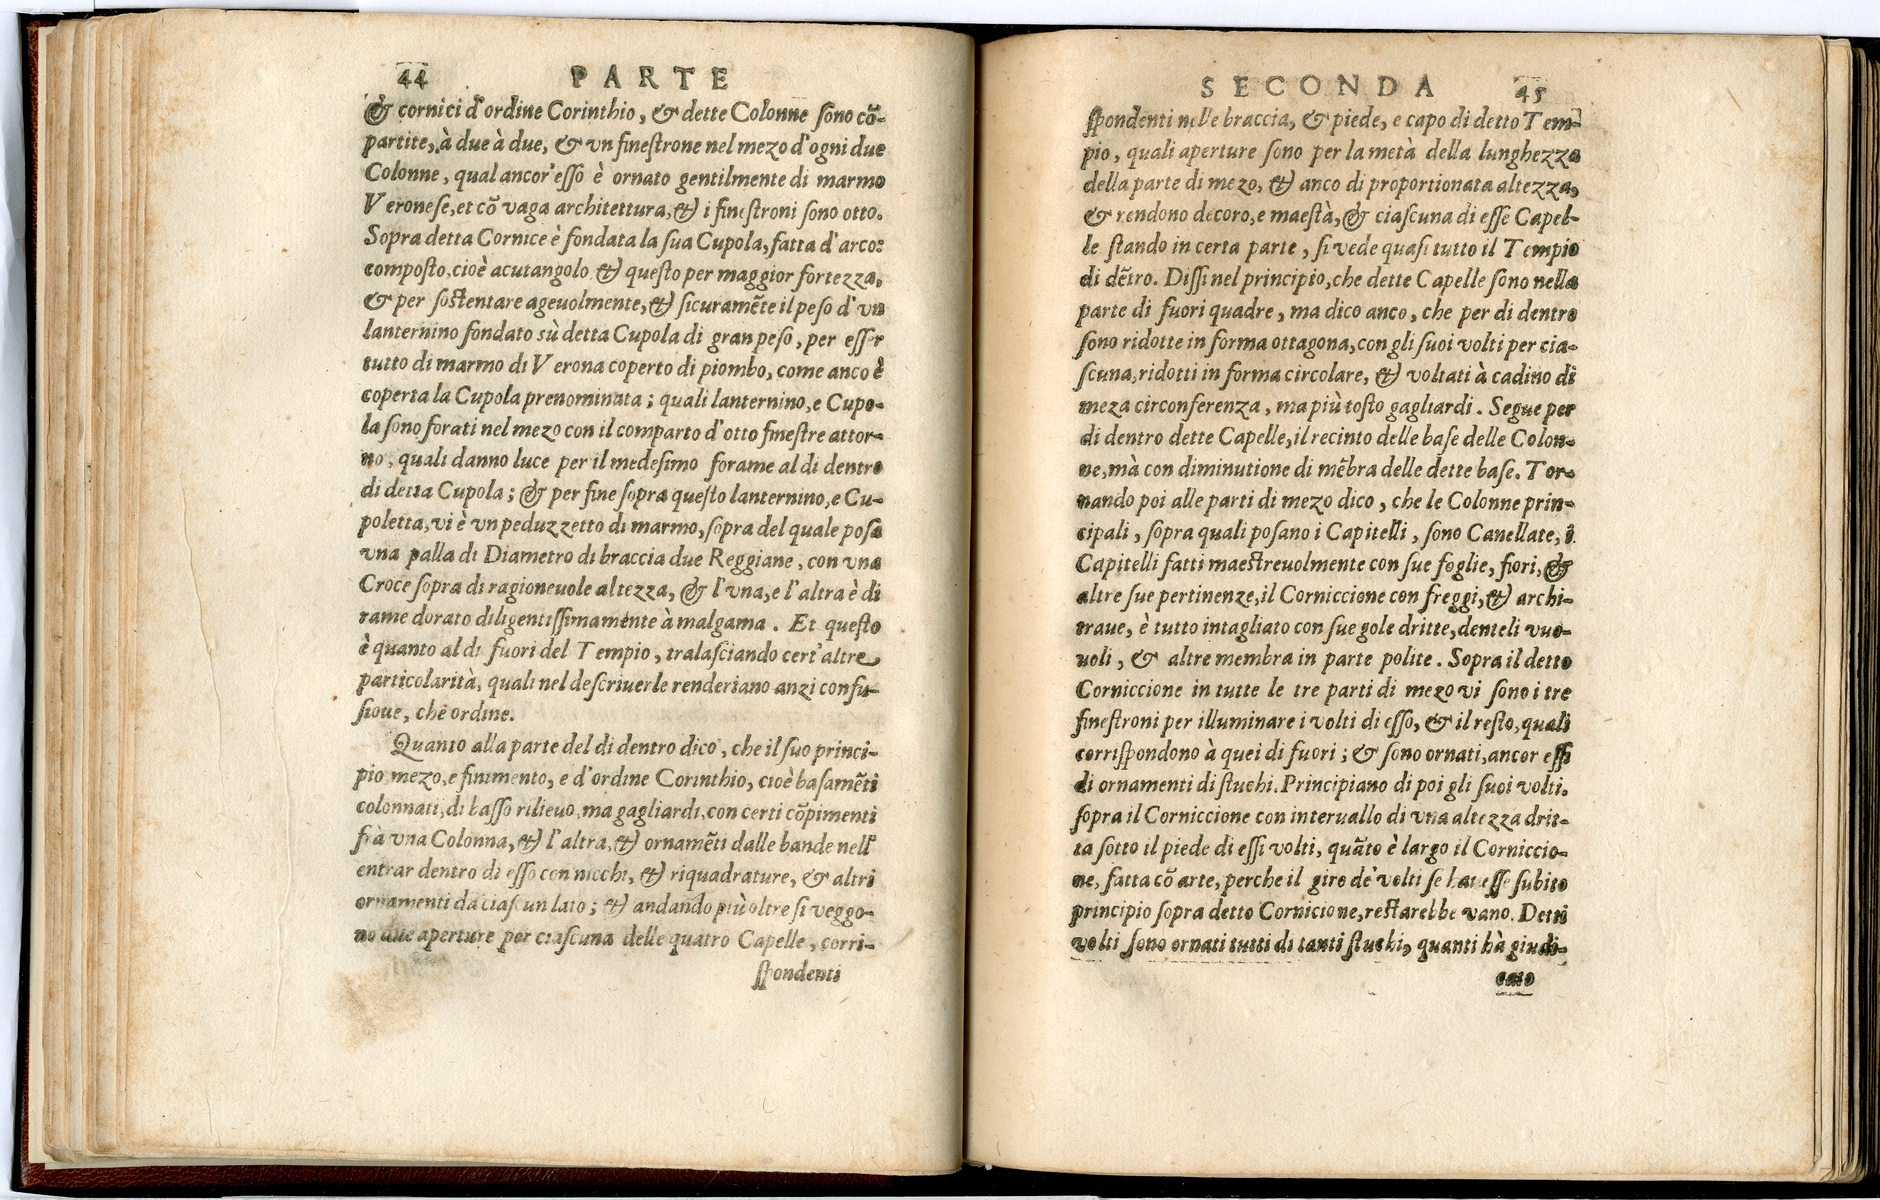 44 PARTE
& cornici d'ordine Corinthio, & dette Colonne sono cõ-
partite, à due à due, & vn finestrone nel mezo d'ogni due
Colonne, qual ancor'esso è ornato gentilmente di marmo
Veronese, et cõ vaga architettura, & i finestroni sono otto.
Sopra detta Cornice è fondata la sua Cupola, fatta d'arco:
composto, cioè acutangolo & questo per maggior fortezza,
& per sostentare ageuolmente, & sicuramẽte il peso d'vn
lanternino fondato sù detta Cupola di gran peso, per esser
tutto di marmo di Verona coperto di piombo, come anco è
coperta la Cupola prenominata; quali lanternino, e Cupo-
la sono forati nel mezo con il comparto d'otto finestre attor-
no, quali danno luce per il medesimo forame al di dentro
di detta Cupola; & per fine sopra questo lanternino, e Cu-
poletta, vi è vn peduzzetto di marmo, sopra del quale posa
vna palla di Diametro di braccia due Reggiane, con vna
Croce sopra di ragioneuole altezza, & l'vna, e l'altra è di
rame dorato diligentissimamente à malgama. Et questo
è quanto al di fuori del Tempio, tralasciando cert'altre
particolarità, quali nel descriuerle renderiano anzi confu-
sione, che ordine.
Quanto alla parte del di dentro dico, che il suo princi-
pio, mezo, e finimento, e d'ordine Corinthio, cioè basamẽti
colonnati, di basso rilieuo, ma gagliardi, con certi cõpimenti
frà vna Colonna, & l'altra, & ornamẽti dalle bande nell'
entrar dentro di esso con nicchi, & riquadrature, & altri
ornamenti da ciascun lato; & andando più oltre si veggo-
no due aperture per ciascuna delle quatro Capelle, corri-
spondenti
SECONDA 45
spondenti nelle braccia, & piede, e capo di detto Tem-
pio, quali aperture sono per la metà della lunghezza
della parte di mezo, & anco di proportionata altezza,
& rendono decoro, e maestà, & ciascuna di esse Capel-
le stando in certa parte, si vede quasi tutto il Tempio
di dẽtro. Dissi nel principio, che dette Capelle sono nella
parte di fuori quadre, ma dico anco, che per di dentro
sono ridotte in forma ottagona, con gli suoi volti per cia-
scuna, ridotti in forma circolare, & voltati à cadino di
meza circonferenza, ma più tosto gagliardi. Segue per
di dentro dette Capelle, il recinto delle base delle Colon-
ne, mà con diminutione di mẽbra delle dette base. Tor-
nando poi alle parti di mezo dico, che le Colonne prin-
cipali, sopra quali posano i Capitelli, sono Canellate, i
Capitelli fatti maestreuolmente con sue foglie, fiori, &
altre sue pertinenze, il Corniccione con freggi, & archi-
traue, è tutto intagliato con sue gole dritte, denteli vuo-
uoli, & altre membra in parte polite. Sopra il detto
Corniccione in tutte le tre parti di mezo vi sono i tre
finestroni per illuminare i volti di esso, & il resto, quali
corrispondono à quei di fuori; & sono ornati, ancor essi
di ornamenti di stuchi. Principiano di poi gli suoi volti.
sopra il Corniccione con interuallo di vna altezza drit-
ta sotto il piede di essi volti, quãto è largo il Corniccio-
ne, fatta cõ arte, perche il giro de' volti se hauesse subito
principio sopra detto Cornicione, restarebbe vano. Detti
volti sono ornati tutti di tanti stuchi, quanti hà giudi-
cato